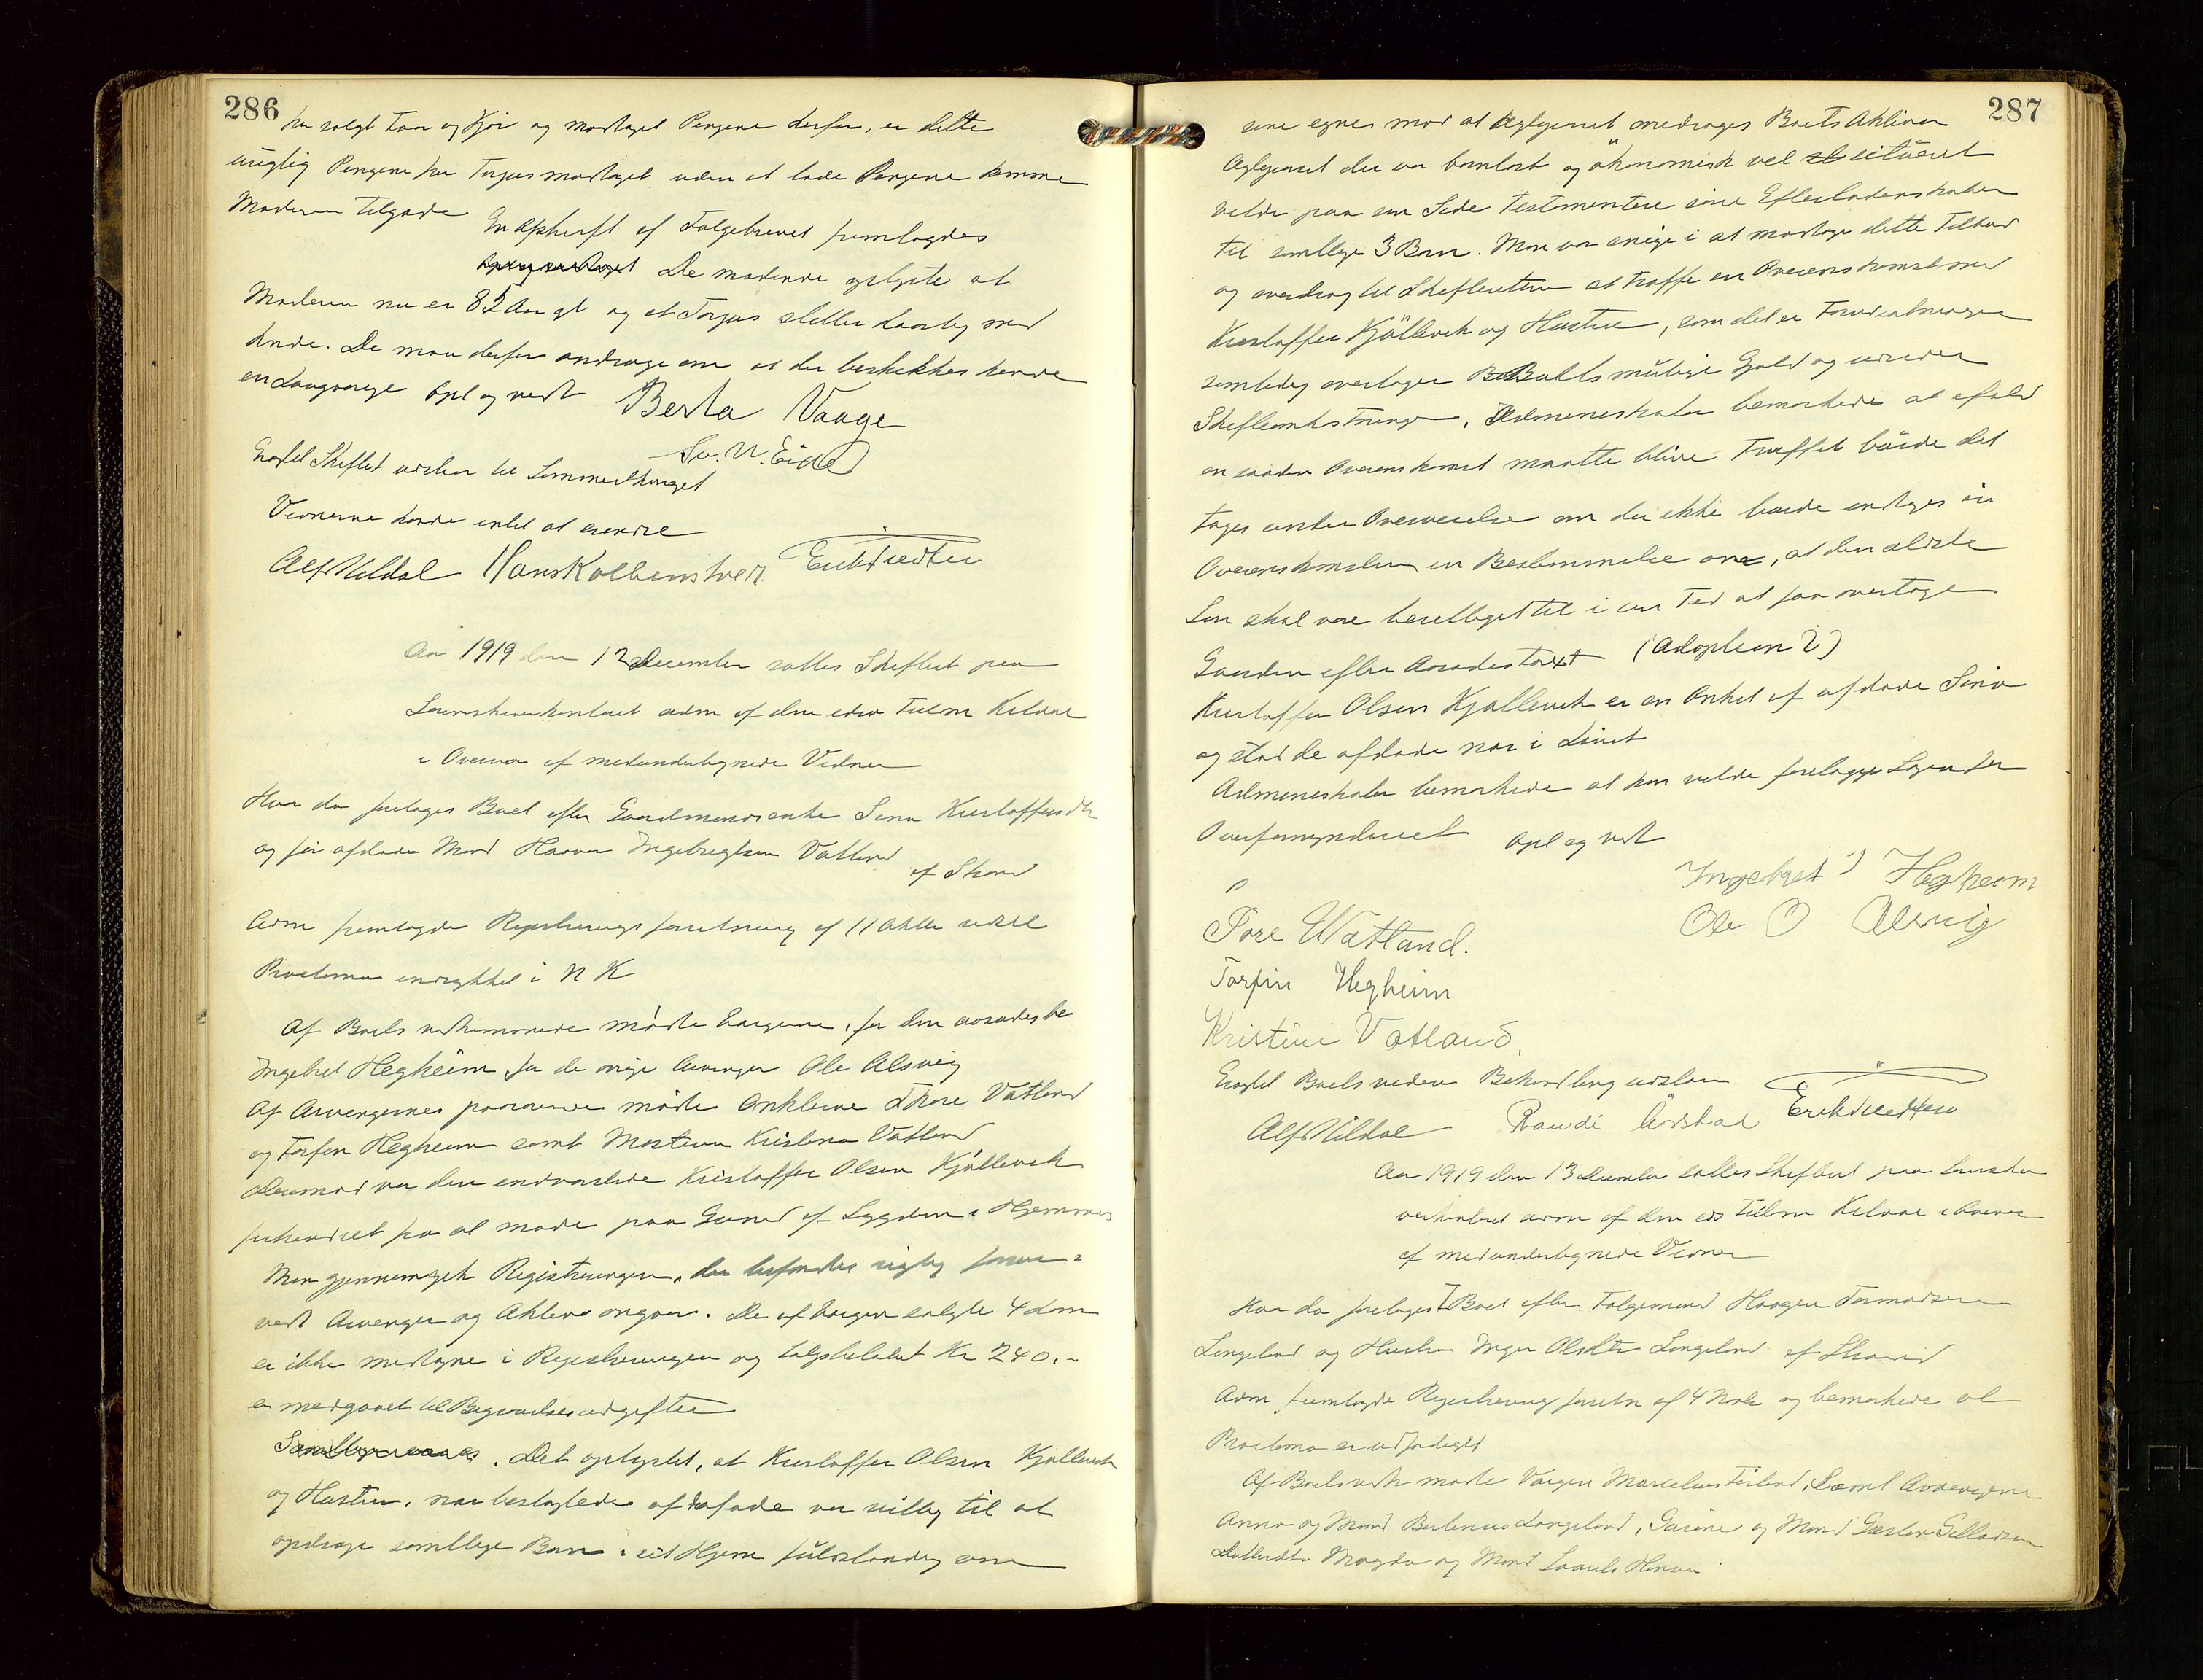 286
har solgt Faar og Kjör og modtaget Pengene derfor, er dette
urigtig Pengene har Torjus modtaget uden at lade Pengene komme
Moderen tilgode
En Afskrift af Folgebrevet fremlagdes
De mødende oplyste at
Moderen nu er 85 Aar gl og at Torjus steller daarlig med
hende. De maa derfor andrage om at der beskikkes hende
en Laugværge Opl og vedt Berta Vaage
Sv. N. Eide
Endel Skiftet udsken til Sommerthinget
Vidnerne havde intet at erindre
Alf Kildal Hans Kolbenstvedt. Erik Tvedten
Aar 1919 den 12 December sattes Skifteret paa
Lensmandskontoret adm af den edsv Fuldm Kildal
i Overvær af medundertegnede Vidner
Hvor da foretoges Boet efter Gaardmandsenke Sina Kristoffersdtr
og før afdøde Mand Haaver Ingebregtsen Vatland
af Skaare
Adm fremlagde Registreringsforretning af 11 Oktbr sidstl
Proclama indrykket i N K
Af Boets vedkommende mødte Værgerne, for den
Ingebret Hegheim for de øvrige Arvinger Ole Alsvig
Af Arvingernes paarørende mødte Onklerne Thore Vatland
og Torfin Hegheim samt Mosteren Kristine Vatland
Derimod var den indvarslede Kristoffer Olsen Kjøllevik
forhindret fra at møde paa Grund af Sygdom i Hjemmet
Man gjennemgik Registreringen, der befandtes rigtig forsaa-
vedt Arvinger og Aktiva angaar. De af Værgen solgte 4 Lam
er ikke medtagne i Registreringen og Salgsbeløbet Kr 240.-
er medgaaet til Begravelsesudgifter
Det oplystes, at Kristoffer Olsen Kjøllevik
og Hustru, nær beslægtede af de afdøde var villig til at
opdrage samtlige Barn i sit Hjem fuldstændig som
287
sine egne mod at Ægteparret overdrages Boets Aktiva
Ægteparret der var barnløst og økonomisk vel situeret
vilde paa sin Side testamentere sine Efterladenskaber
til samtlige 3 Barn. Man var enige i at modtage dette Tilbud
og overdrog til Skifteretten at træffe en Overenskomst med
Kristoffer Kjøllevik og Hustru, som det er Forudsætningen
samtidig overtager Boets mulige Gjæld og udreder
Skifteomkostninger. Administrator bemærkede at ifald
en saadan Overenskomst maatte blive truffet burde det
tages under Overveielse om der ikke burde indtages i
Overenskomsten en Bestemmelse om, at den ældste
Søn skal være berettiget til i sin Tid at faa overtage
Gaarden efter Aasædestaxt (Adoption ?)
Kristoffer Olsen Kjøllevik er en Onkel af afdøde Sina
og stod de afdøde nær i Livet
Administrator bemærkede at han vilde forelægge Sagen for
Overformynderiet Opl og vedt
Ingebret J Hegheim
Tore Watland. Ole O Alsvig
Torfin Hegheim
Kristine Vatland.
Endel Boets videre Behandling udstaar
Alf Kildal Randi Årstad Erik Tvedten
Aar 1919 den 13 December sattes Skifteret paa Lensmands-
kontoret adm af den eds Fuldm Kildal i Overvær
af medundertegnede Vidner
Hvor da foretoges Boet efter Folgemand Haagen Tormodsen
Langeland og Hustru Inger Olsdtr Langeland af Skaare
Adm fremlagde Registreringsforretn af 4 Novbr og bemærkede at
Proclama er udfærdiget
Af Boets vedk mødte Værgen Marcelius Førland, samt Arvingerne
Anna og Mand Berlinius Langeland, Gurine og Mand
Magda og Mand